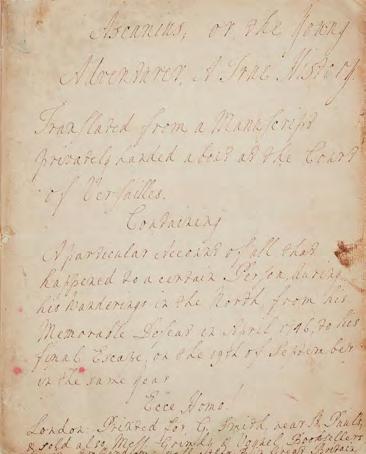 Ascanius, or the Young
Adventurer, A True History
Translated from a Manuscript
privately handed about at the Court
of Versailles.
Containing
A particular Account of all that
happened to a certain Person, during
his Wanderings in the North, from his
Memorable Defeat in April 1746, to his
final Escape, on the 19th of September
in the same year
Ecce Homo!
London: Printed for G. Smith, near St. Pauls,
& sold also Mess